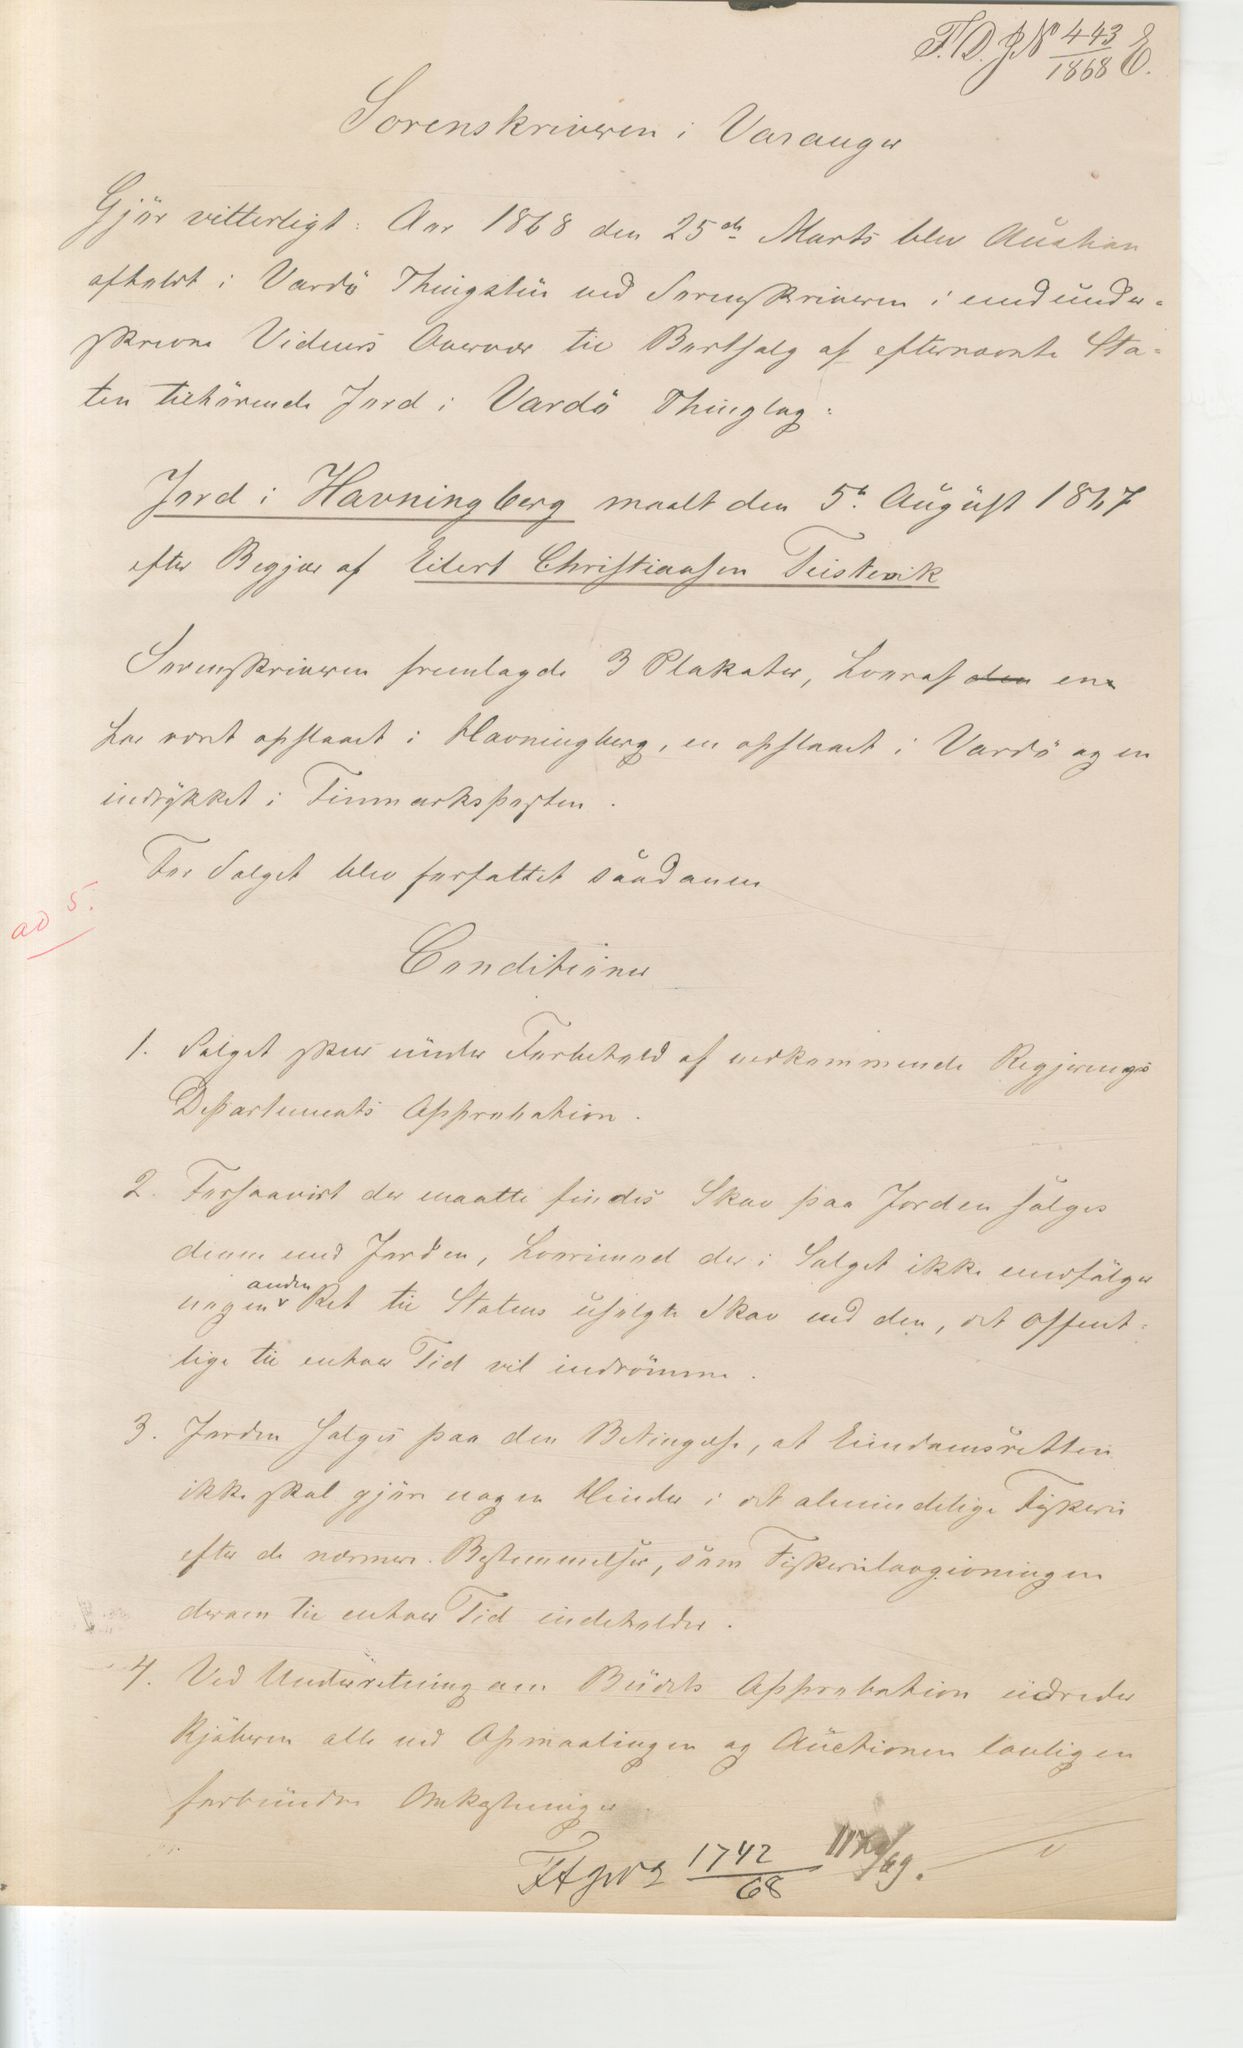 F. D. J N 443/1868 E.
Sorenskriveren i Varanger
Gjør vitterligt: Aar 1868 den 25de Marts blev Auction
afholdt i Vardö Thingstue ved Sorenskriveren i medunder-
skrevne Vidners Overvær til Bortsalg af efternævnte Sta-
ten tilhørende Jord i Vardö Thinglag:
Jord i Havningberg maalt den 5te August 1867
efter Begjær af Eilert Christiansen Teistevik
Sorenskriveren fremlagde 3 Plakater, hvoraf den en
har været opslaaet i Havningberg, en opslaaet i Vardö og en
indrykket i Finmarksposten.
For Salget blev forfattet saadanne
ad 5.
Conditioner
1. Salget skeer under Forbehold af vedkommende Regjerings
Departements Approbation.
2. Forsaavidt der maatte findes Skov paa Jorden sælges
denne med Jorden, hvorimod der i Salget ikke medfølger
nogen anden Ret til Statens usolgte Skov end den, det offent-
lige til enhver Tid vil indrömme.
3. Jorden sælges paa den Betingelse, at Eiendomsretten
ikke skal gjöre nogen Hinder i det almindelige Fiskeri
efter de nærmere Bestemmelser, som Fiskerilovgivningen
derom til enhver Tid indeholder.
4. Ved Underretning om Budets Approbation udreder
Kjøberen alle ved Opmaalingen og Auctionen lovligen
forbundne Omkostninger.
1742/68 /69.